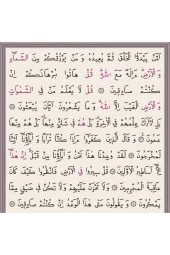 أَمَّنْ يَبْدَؤُا الْخَلْقَ ثُمَّ يُعِيدُهُ وَ مَنْ يَرْزُقُكُمْ مِنَ السَّمَاءِ
وَ الْأَرْضِ أَإِلٰهٌ مَعَ اللّٰهِ قُلْ هَاتُوا بُرْهَانَكُمْ إِنْ
كُنْتُمْ صَادِقِينَ ۞ قُلْ لَا يَعْلَمُ مَنْ فِي السَّمٰوَاتِ
وَ الْأَرْضِ الْغَيْبَ إِلَّا اللّٰهُ وَ مَا يَشْعُرُونَ أَيَّانَ يُبْعَثُونَ ۞
بَلِ ادَّارَكَ عِلْمُهُمْ فِي الْآخِرَةِ بَلْ هُمْ فِي شَكٍّ مِنْهَا بَلْ هُمْ مِنْهَا
عَمُونَ ۞ وَ قَالَ الَّذِينَ كَفَرُوا أَإِذَا كُنَّا تُرَابًا وَ آبَاؤُنَا أَئِنَّا
لَمُخْرَجُونَ ۞ لَقَدْ وُعِدْنَا هٰذَا نَحْنُ وَ آبَاؤُنَا مِنْ قَبْلُ إِنْ هٰذَا
إِلَّا أَسَاطِيرُ الْأَوَّلِينَ ۞ قُلْ سِيرُوا فِي الْأَرْضِ فَانْظُرُوا كَيْفَ كَانَ
عَاقِبَةُ الْمُجْرِمِينَ ۞ وَ لَا تَحْزَنْ عَلَيْهِمْ وَ لَا تَكُنْ فِي ضَيْقٍ مِمَّا
يَمْكُرُونَ ۞ وَ يَقُولُونَ مَتَى هٰذَا الْوَعْدُ إِنْ كُنْتُمْ صَادِقِينَ ۞